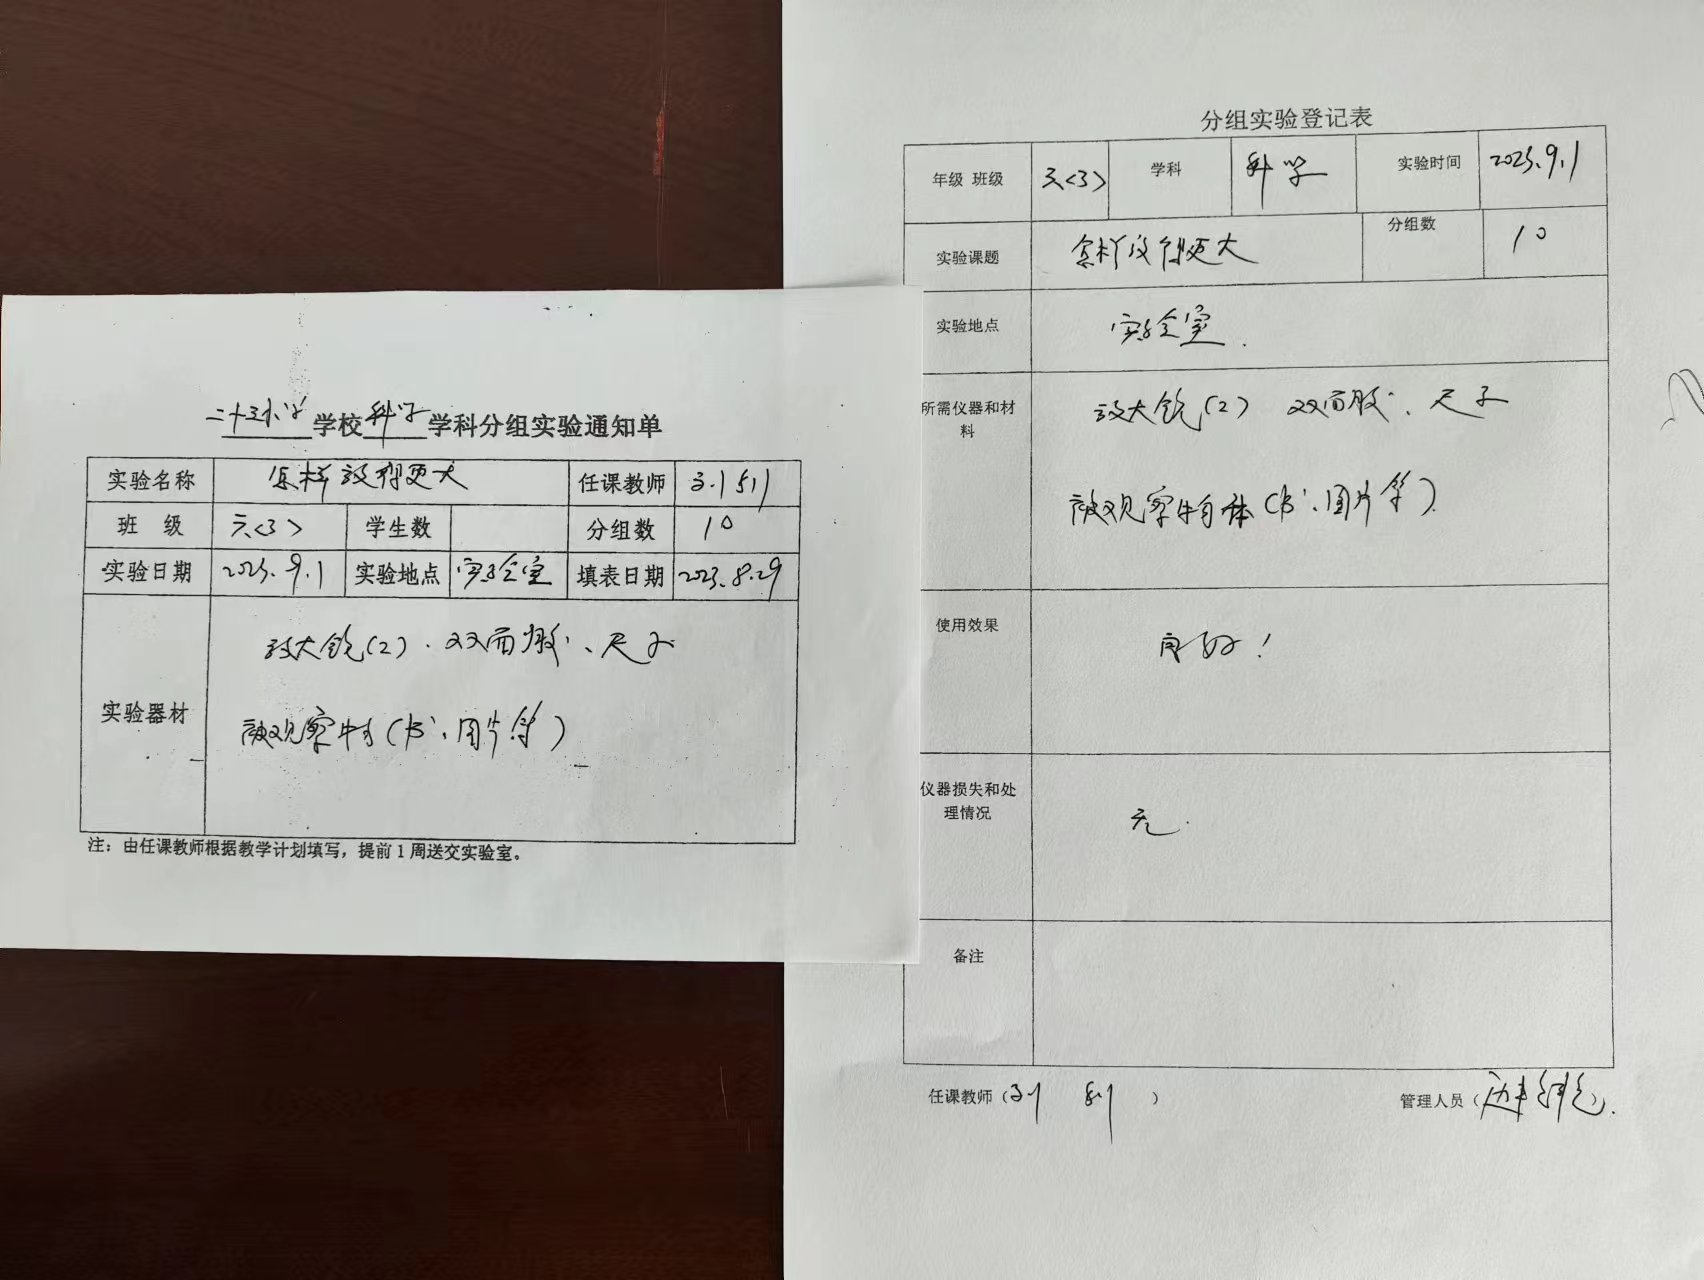 二十三小学学校科学学科分组实验通知单
实验名称 怎样放得更大 任课教师
班 级 六<3> 学生数 分组数 10
实验日期 2023.9.1 实验地点 实验室 填表日期 2023.8.29
实验器材 放大镜(2)、双面胶、尺子
被观察物(书、图片等)
注：由任课教师根据教学计划填写，提前1周送交实验室。
分组实验登记表
年级 班级 六<3> 学科 科学 实验时间 2023.9.1
实验课题 怎样放得更大 分组数 10
实验地点 实验室.
所需仪器和材料 放大镜(2) 双面胶、尺子
被观察物体(书、图片等)
使用效果 良好!
仪器损失和处理情况 无.
备注
任课教师( )
管理人员( ).